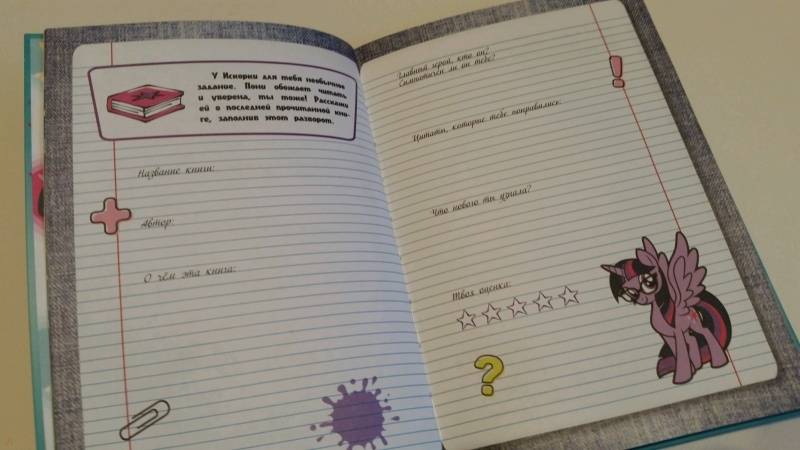 У Искорки для тебя необычное
задание. Пони обожает читать
и уверена, ты тоже! Расскажи
ей о последней прочитанной кни-
ге, заполнив этот разворот.
Название книги:
Автор:
О чём эта книга:
Главный герой, кто он?
Симпатичен ли он тебе?
Цитаты, которые тебе понравились:
Что нового ты узнала?
Твоя оценка: